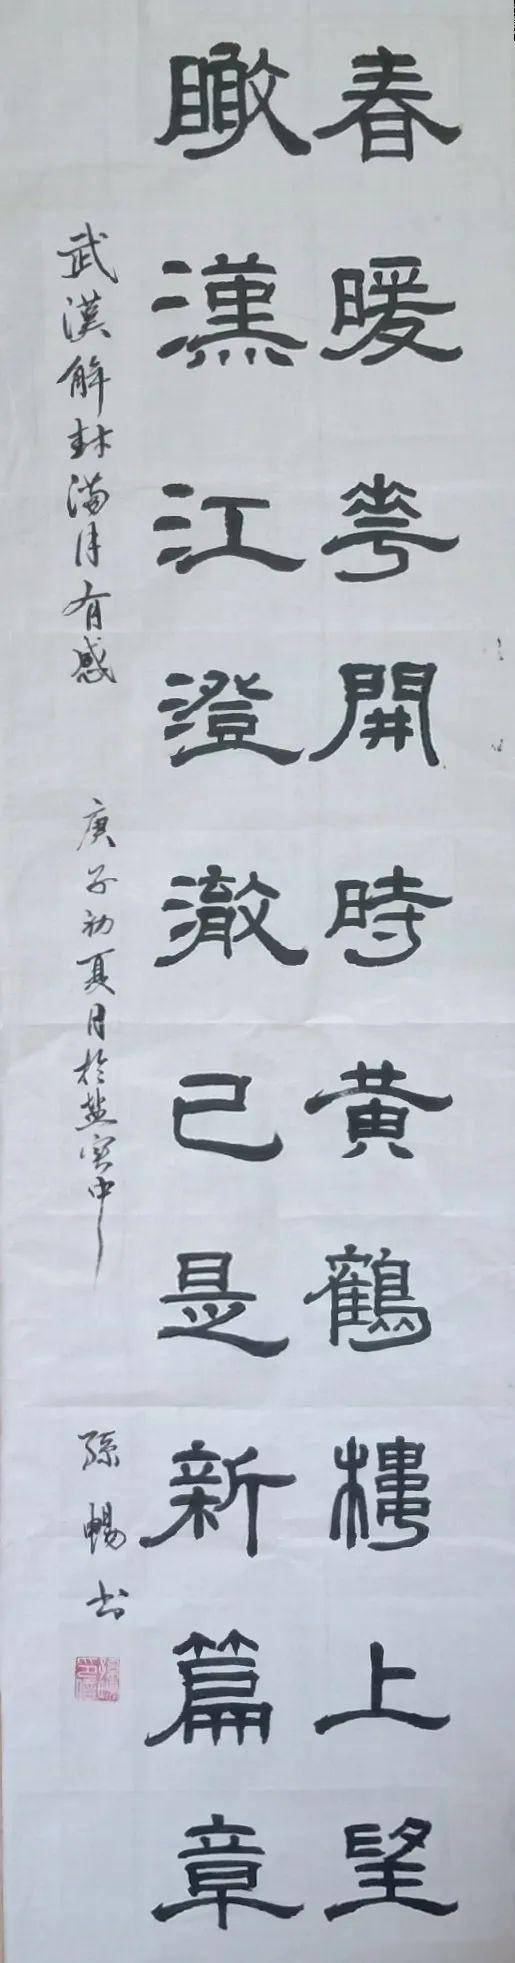 春暖花開時黃鶴樓上望
瞰漢江澄澈已是新篇章
武漢解封滿月有感 庚子初夏月於盐寓中 孫暢书